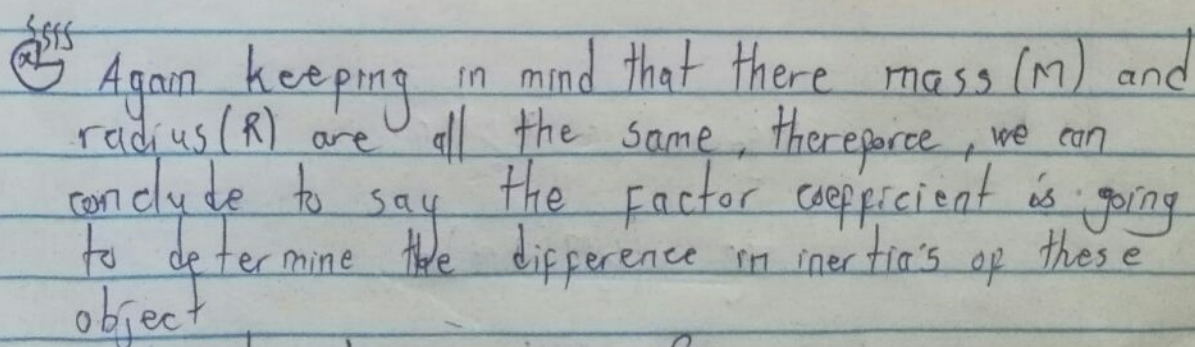 Again keeping in mind that there mass (M) and
radius (R) are all the same, thereforce, we can
conclude to say the Factor coefficient is going
to determine the difference in inertia's of these
object